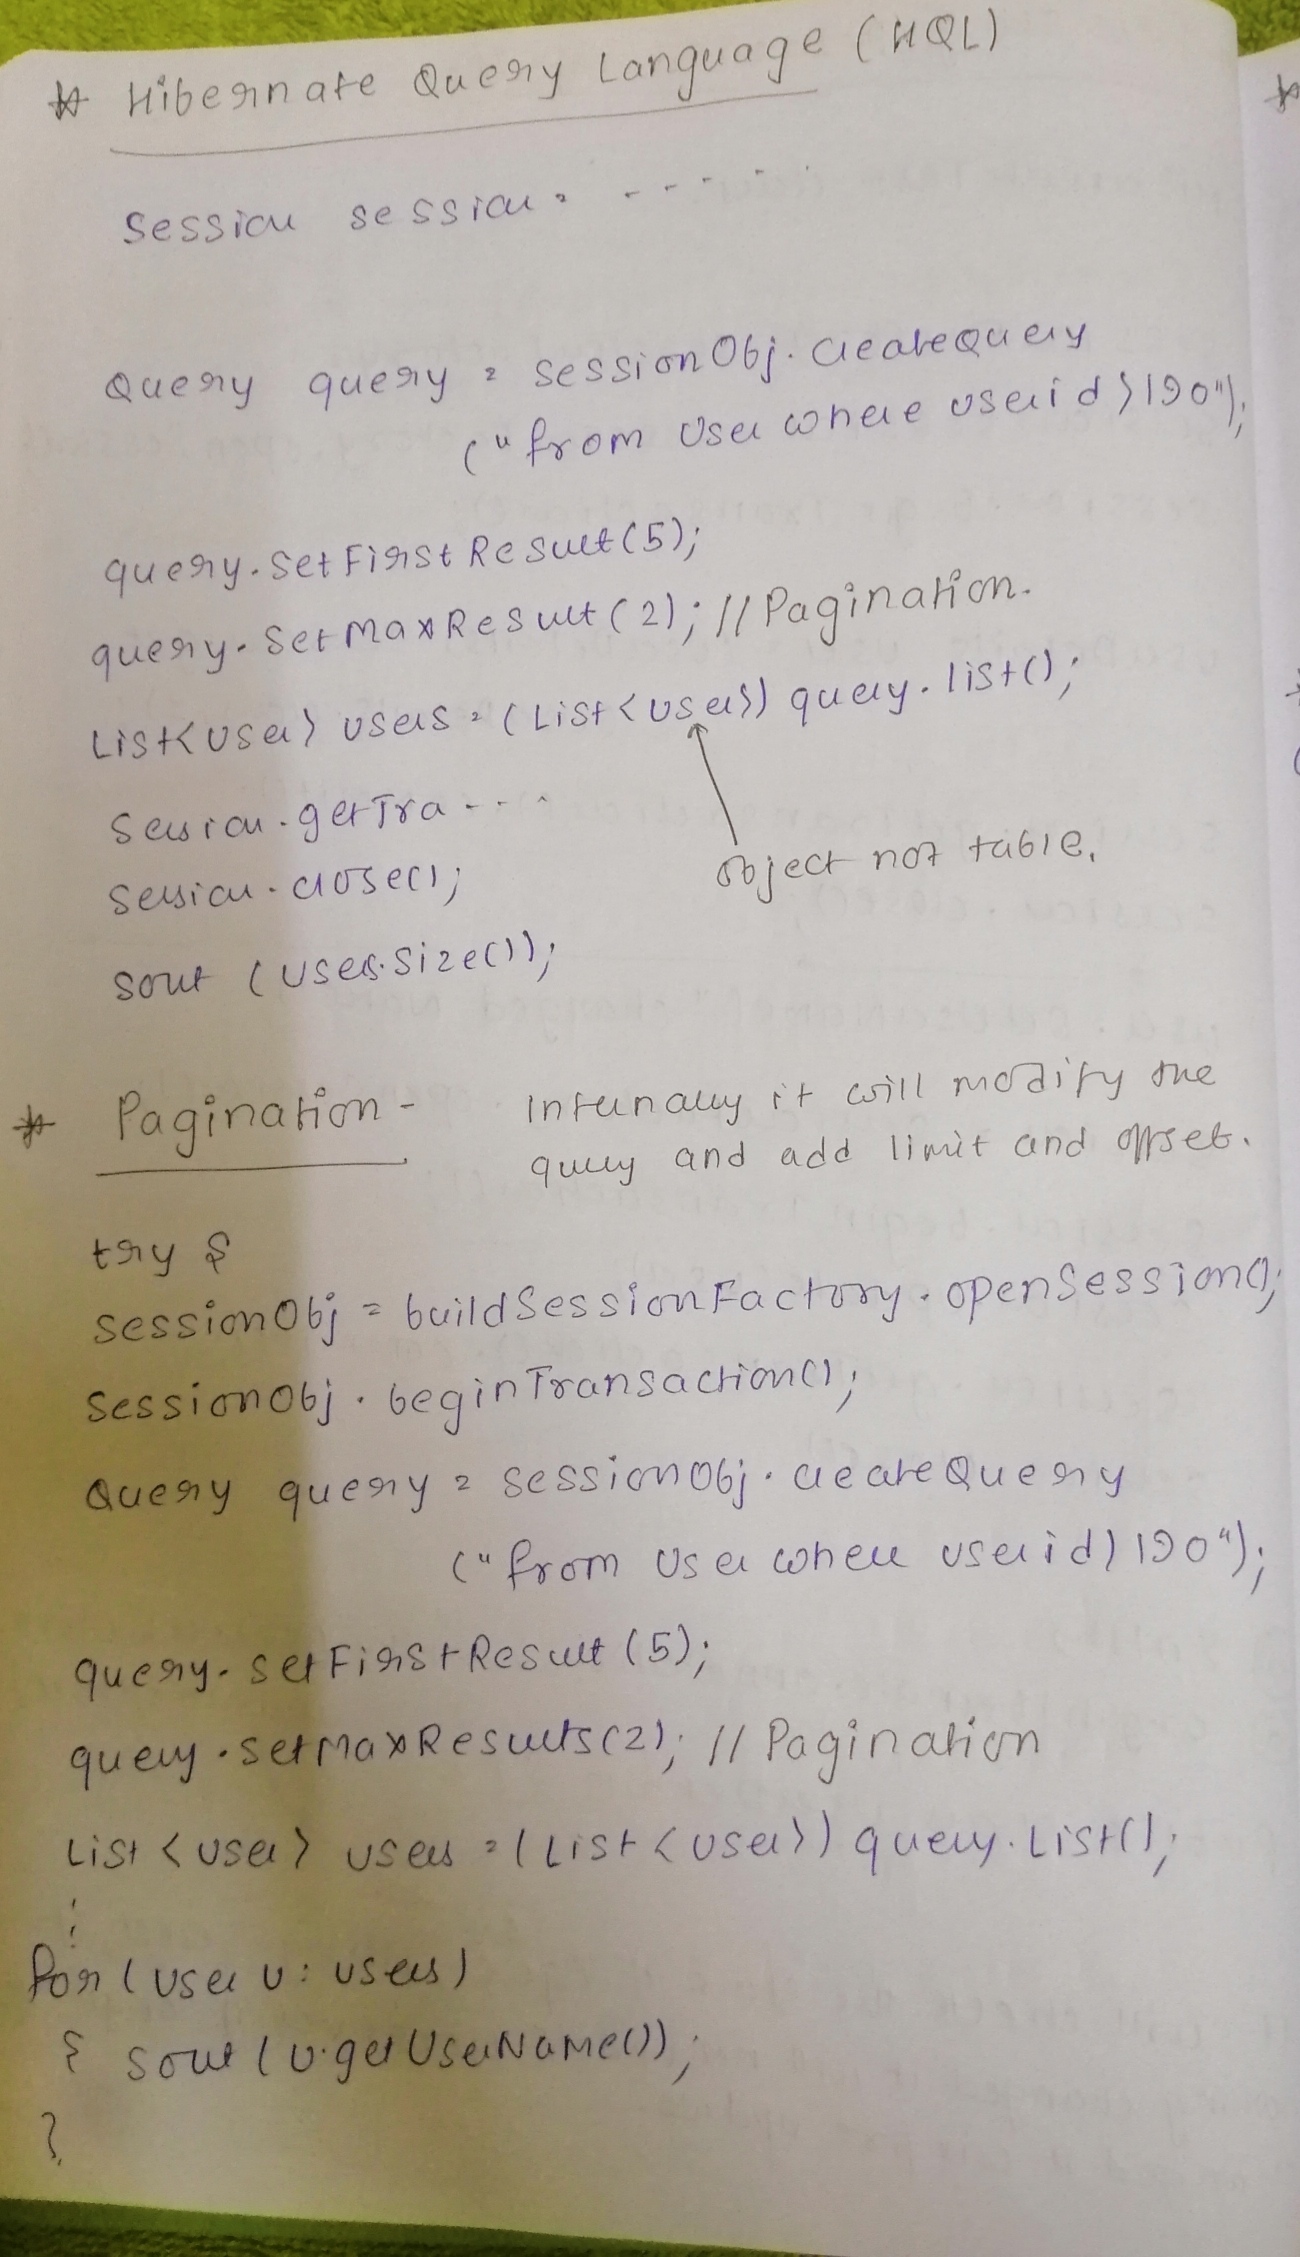 * Hibernate Query Language (HQL)
Session session = - - - - - -
Query query = sessionObj.createQuery
("from User where userid >190");
query.setFirstResult(5);
query.setMaxResult(2); // Pagination.
List<User> users = (List<User>) query.list();
Session.getTra - - -
object not table.
Session.close();
sout (users.size());
* Pagination - Internally it will modify the
query and add limit and offset.
try {
sessionObj = buildSessionFactory.openSession();
sessionObj.beginTransaction();
Query query = sessionObj.createQuery
("from User where userid >190");
query.setFirstResult (5);
query.setMaxResults(2); // Pagination
List <User> users = (List <User>) query.List();
for (User u : users)
{ sout (u.getUserName());
}